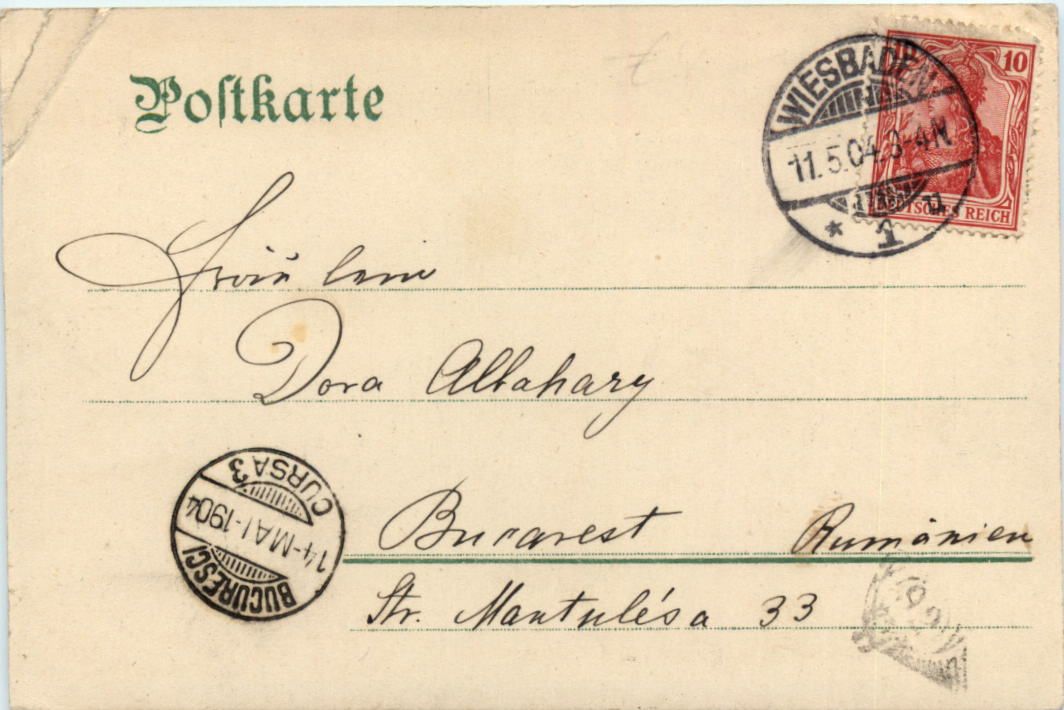 Postkarte
10
WIESBADEN
11.5.04.3-4N.
* 1 n
DEUTSCHES REICH
Fräulein
Dora Albahary
CURSA 3
14-MAI-1904
BUCURESCI
Bucarest Rumänien
Str. Mantulésa 33